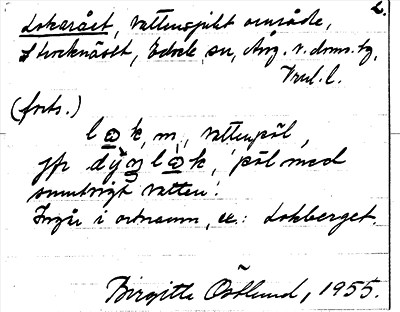 2.
Lokaråst, vattensjukt område,
Stocknäset, Edsele sn, Ång. v. doms. tg,
(forts.)
lok, m, vattenpöl,
jfr dyŋlok, 'pöl med
smutsigt vatten'.
Ingår i ortnamn, ex.: Lokberget.
Birgitta Östlund, 1955.